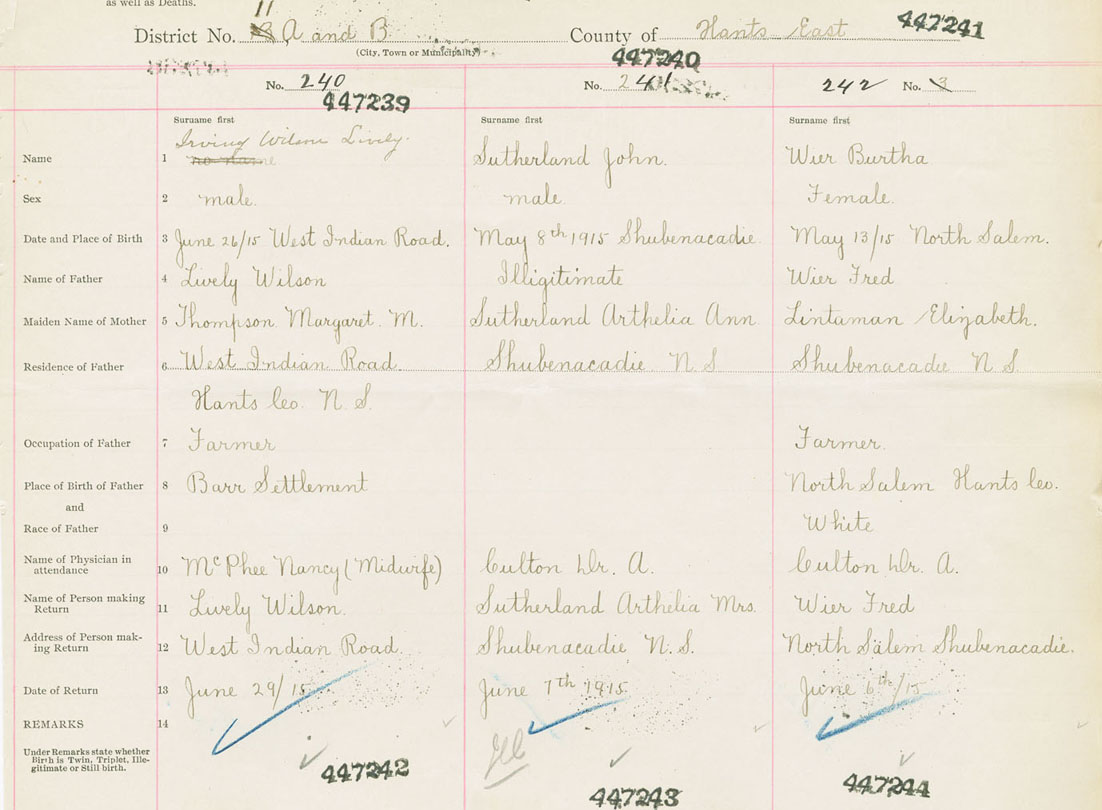 as well as Deaths.
11
District No. 8 A and B County of Hants East 447241
(City, Town or Municipality)
447240
No. 240 No. 241 242 No. 3
447239
Surname first Surname first Surname first
Irving Wilson Lively.
Name 1 no name Sutherland John. Wier Burtha
Sex 2 male. male. Female.
Date and Place of Birth 3 June 26/15 West Indian Road. May 8th 1915 Shubenacadie. May 13/15 North Salem.
Name of Father 4 Lively Wilson Illigitimate Wier Fred
Maiden Name of Mother 5 Thompson Margaret. M. Sutherland Arthelia Ann Lintaman Elizabeth.
Residence of Father 6 West Indian Road. Shubenacadie N S Shubenacadie N S
Hants Co. N. S.
Occupation of Father 7 Farmer Farmer.
Place of Birth of Father 8 Barr Settlement North Salem Hants Co.
and
Race of Father 9 White
Name of Physician in attendance 10 McPhee Nancy (Midwife) Culton Dr. A. Culton Dr. A.
Name of Person making Return 11 Lively Wilson. Sutherland Arthelia Mrs. Wier Fred
Address of Person mak-ing Return 12 West Indian Road. Shubenacadie N. S. North Salem Shubenacadie.
Date of Return 13 June 29/15 June 7th 1915 June 6th/15
REMARKS 14
Under Remarks state whether
Birth is Twin, Triplet, Ille-
gitimate or Still birth.
447242 447243 447244